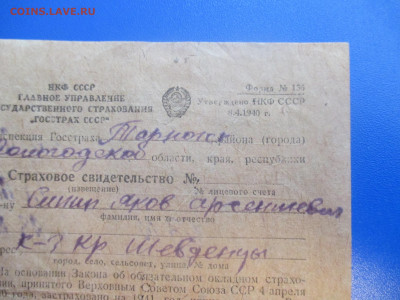 COINS.LAVE.RU
НКФ СССР
ГЛАВНОЕ УПРАВЛЕНИЕ
СУДАРСТВЕННОГО СТРАХОВАНИЯ
„ГОССТРАХ СССР"
Форма № 154
Утверждено НКФ СССР
1940 г.
спекция Госстраха района (города)
Вологодской области, края, республики
Страховое свидетельство №
(извещение) № лицевого счета
ну Яков Арсениевич
фамилия, имя и отчество
рес К-з Кр Шевденцы
город, село, сельсовет, улица № дома
На основании Закона об обязательном окладном страхо-
нии, принятого Верховным Советом Союза ССР 4 апреля
40 г., застраховано на 1941